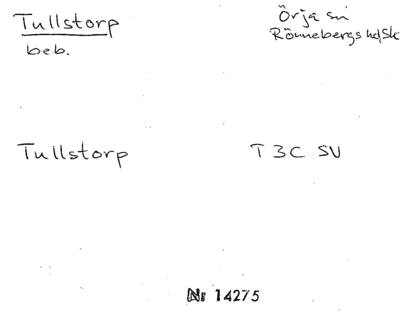 Tullstorp
beb.
Örja sn
Rönnebergs hd, Sk
Tullstorp
T 3C SV
Nr 14275